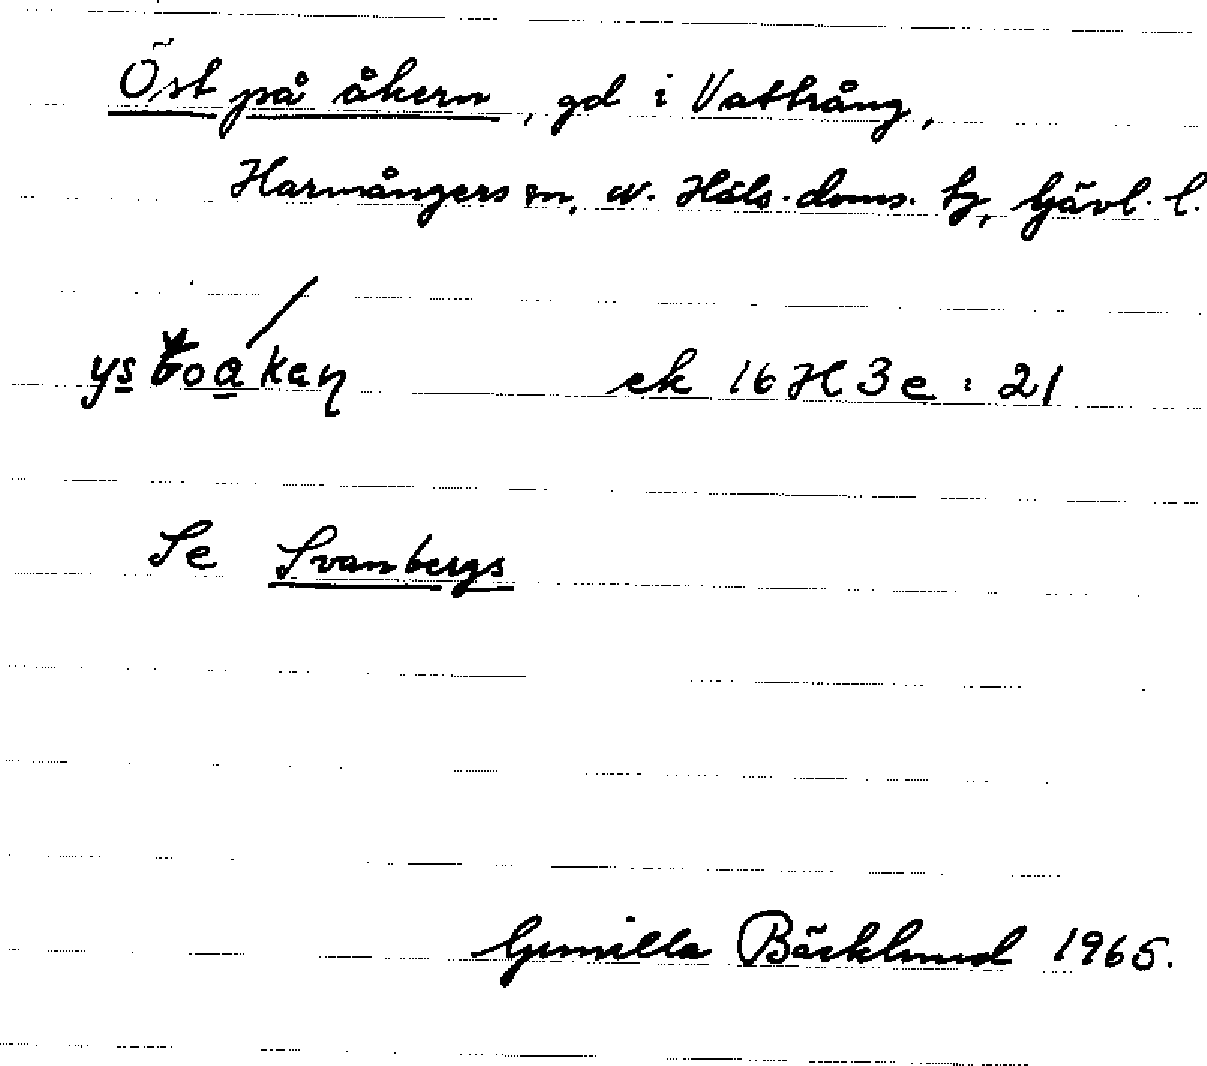 Öst på åkern, gd i Vattrång,
Harmångers sn, n. Häls. doms. tg, Gävl. l.
ek 16 H 3 e : 21
Se Svanbergs
Gunilla Bäcklund 1965.